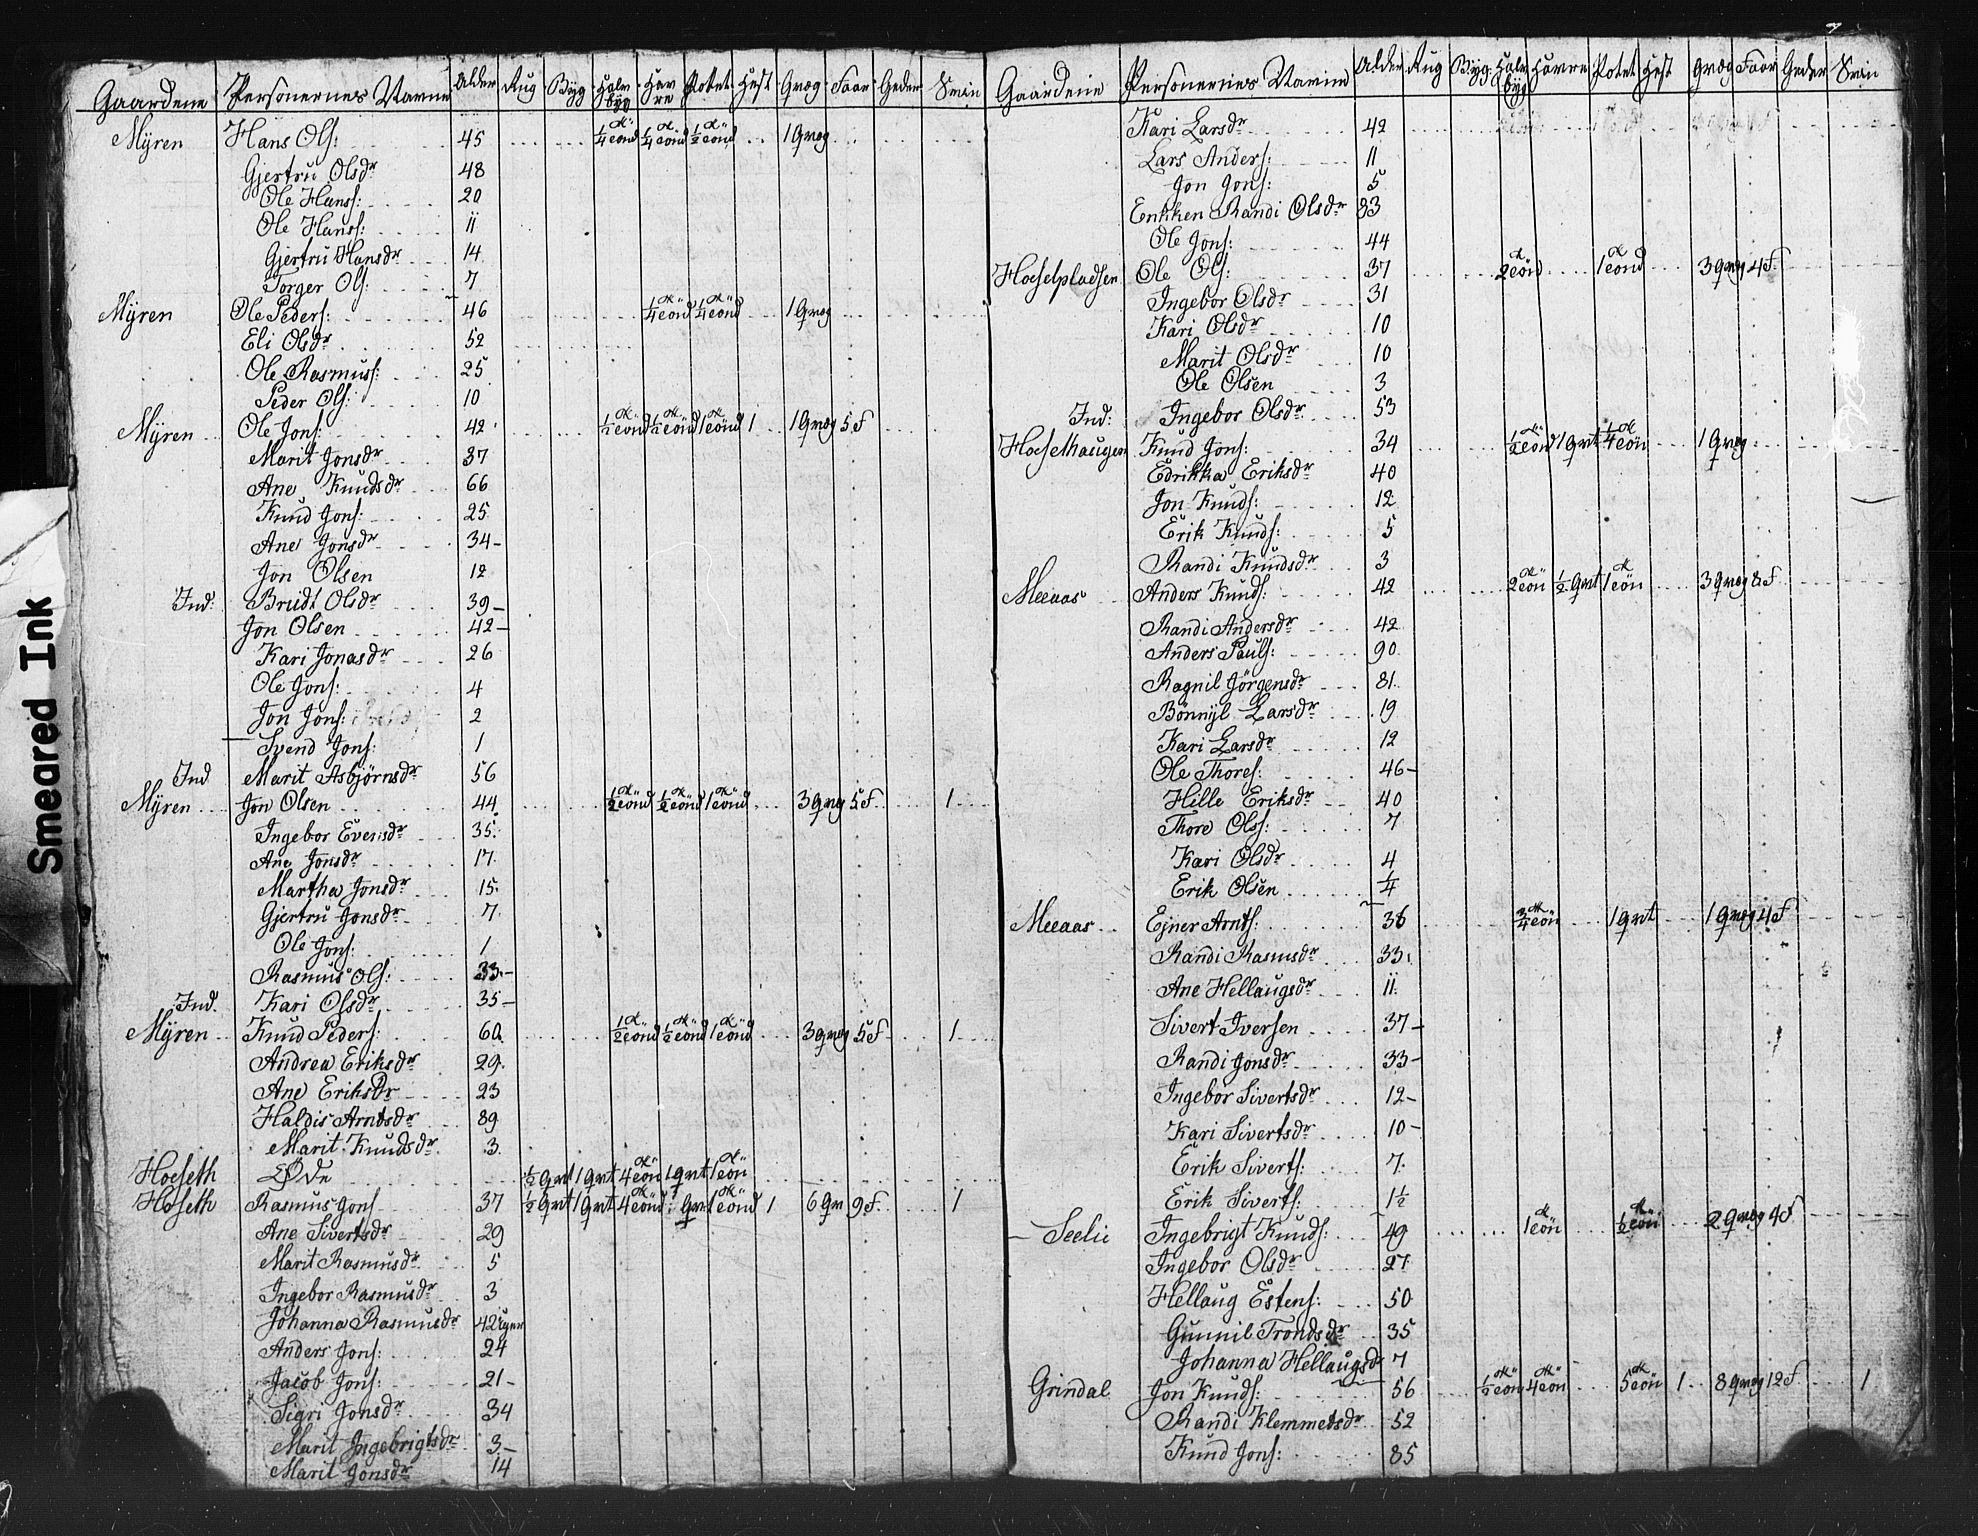 Gaardene Personernes Navne Alder Rug Byg Halv byg Havre Potet Hest Qvæg Faar Geder Svin
Myren Hans Ols: 45 1/4 tönd 1/4 tönd 1/2 tönd 1 Qvæg
Gjertru Olsdr 48
Ole Hans: 20
Ole Hans: 11
Gjertru Hansdr 14
Torger Ols: 7
Myren Ole Peders: 46 1/4 tönd 1/4 tönd 1 Qvæg
Eli Olsdr 52
Ole Rasmus: 25
Peder Ols: 10
Myren Ole Jons: 42 1/2 tönd 1/2 tönd 1 tönd 1 1 Qvæg 5 F
Marit Jonsdr 37
Ane Knudsdr 66
Knud Jons: 25
Ane Jonsdr 34
Jon Olsen 12
Ind: Brudt Olsdr 39
Jon Olsen 42
Kari Jonasdr 26
Ole Jons: 4
Jon Jons: 2
Svend Jons: 1
Ind Marit Asbjörnsdr 56
Myren Jon Olsen 44 1/2 tönd 1/2 tönd 1 tönd 3 Qvæg 5 F 1
Ingebor Evensdr 35
Ane Jonsdr 17
Martha Jonsdr 15
Gjertru Jonsdr 7
Ole Jons: 1
Rasmus Ols: 33
Ind. Kari Olsdr 35
Myren Knud Peders: 60 1/2 tönd 1/2 tönd 1 tönd 3 Qvæg 5 F 1
Andrea Eriksdr 29
Ane Eriksdr 23
Haldis Arntsdr 89
Marit Knudsdr 3
Hoeseth Øde 1/2 Qvt 1 Qvt 4 tön 1 Qvt 1 tön
Hoseth Rasmus Jons 37 1/2 Qvt 1 Qvt 4 tönd 1 Qvt 1 tönd 1 6 Qv 9 F 1
Ane Sivertsdr 29
Marit Rasmusdr 5
Ingebor Rasmusdr 3
Johanna Rasmusdr 42 uger
Anders Jons: 24
Jacob Jons: 21
Sigri Jonsdr 34
Marit Ingebrigtsdr 3
Marit Jonsdr 14
Gaardene Personernes Navne Alder Rug Byg Halv byg Havre Potet Hest Qvæg Faar Geder Svin
Kari Larsdr 42
Lars Anders: 11
Jon Jons: 5
Enkken Randi Olsdr 83
Ole Jons: 44
Hoeselpladsen Ole Ols: 37 2 tön 1 tönd 3 Qvæg 4 F
Ingebor Olsdr 31
Kari Olsdr 10
Marit Olsdr 10
Ole Olsen 3
Ind: Ingebor Olsdr 53
Hoesethaugen Knud Jons: 34 1/2 tönd 1 Qvt 1/4 tön 1 Qvæg
Edrikka Eriksdr 40
Jon Knuds: 12
Erik Knuds: 5
Randi Knudsdr 3
Meeaas Anders Knuds: 42 2 tön 1/2 Qvt 1 tön 3 Qvæg 8 F
Randi Andersdr 42
Anders Pauls: 90
Ragnil Jörgensdr 81
Bönnyl Larsdr 19
Kari Larsdr 12
Ole Thores: 46
Hille Eriksdr 40
Thore Ols: 7
Kari Olsdr 4
Erik Olsen 1/4
Meeaas Ejner Arnts: 36 3/4 tön 1 Qvt 1 Qvæg 4 F
Randi Rasmsdr 33
Ane Hellaugsdr 11
Sivert Iversen 37
Randi Jonsdr 33
Ingebor Sivertsdr 12
Kari Sivertsdr 10
Erik Siverts: 7
Erik Siverts: 1 1/2
Seelie Ingebrigt Knuds: 49 1 tön 1/2 tön 2 Qvæg 4 F
Ingebor Olsdr 27
Hellaug Estens: 50
Gunnil Trondsdr 35
Johanna Hellaugsdr 7
Grindal Jon Knuds: 56 1/2 tön 4 tön 5 tön 1 8 Qvæg 12 F 1
Randi Klemmetsdr 52
Knud Jons: 85
Smeared Ink